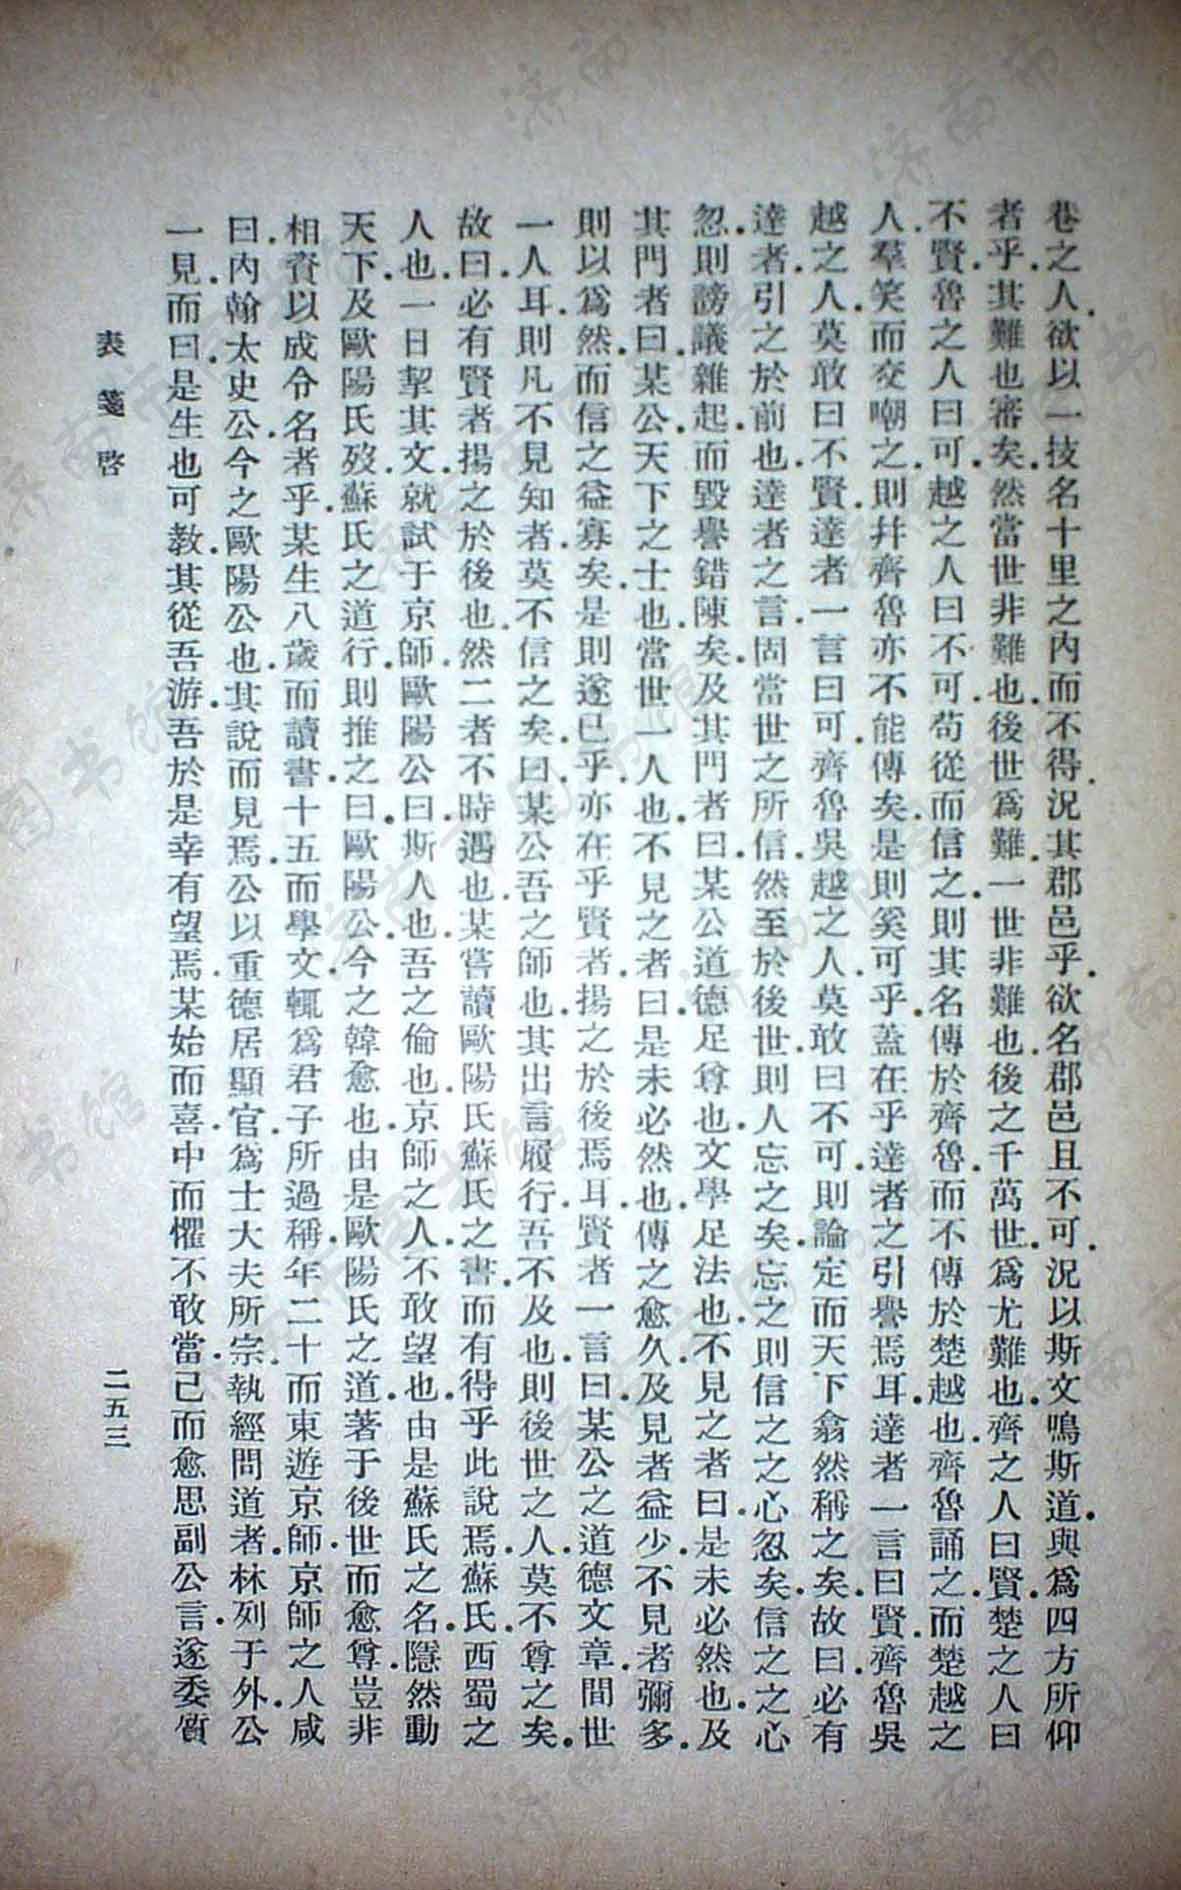 巷之人欲以一技名十里之內而不得況其郡邑乎欲名郡邑且不可況以斯文鳴斯道與爲四方所仰
者乎其難也審矣然當世非難也後世爲難一世非難也後之千萬世爲尤難也齊之人曰賢楚之人曰
不賢魯之人曰可越之人曰不可苟從而信之則其名傳於齊魯而不傳於楚越也齊魯誦之而楚越之
人羣笑而交嘲之則幷齊魯亦不能傳矣是則奚可乎蓋在乎達者之引譽焉耳達者一言曰賢齊魯吳
越之人莫敢曰不賢達者一言曰可齊魯吳越之人莫敢曰不可則論定而天下翕然稱之矣故曰必有
達者引之於前也達者之言固當世之所信然至於後世則人忘之矣忘之則信之之心忽矣信之之心
忽則謗議雜起而毀譽錯陳矣及其門者曰某公道德足尊也文學足法也不見之者曰是未必然也及
其門者曰某公天下之士也當世一人也不見之者曰是未必然也傳之愈久及見者益少不見者彌多
則以爲然而信之益寡矣是則遂已乎亦在乎賢者揚之於後焉耳賢者一言曰某公之道德文章間世
一人耳則凡不見知者莫不信之矣曰某公吾之師也其出言履行吾不及也則後世之人莫不尊之矣
故曰必有賢者揚之於後也然二者不時遇也某嘗讀歐陽氏蘇氏之書而有得乎此說焉蘇氏西蜀之
人也一日挈其文就試于京師歐陽公曰斯人也吾之倫也京師之人不敢望也由是蘇氏之名隱然動
天下及歐陽氏歿蘇氏之道行則推之曰歐陽公今之韓愈也由是歐陽氏之道著于後世而愈尊豈非
相資以成令名者乎某生八歲而讀書十五而學文輒爲君子所過稱年二十而東遊京師京師之人咸
曰內翰太史公今之歐陽公也其說而見焉公以重德居顯官爲士大夫所宗執經問道者林列于外公
一見而曰是生也可敎其從吾游吾於是幸有望焉某始而喜中而懼不敢當已而愈思副公言遂委質
表箋啓
二五三
济南市图书馆